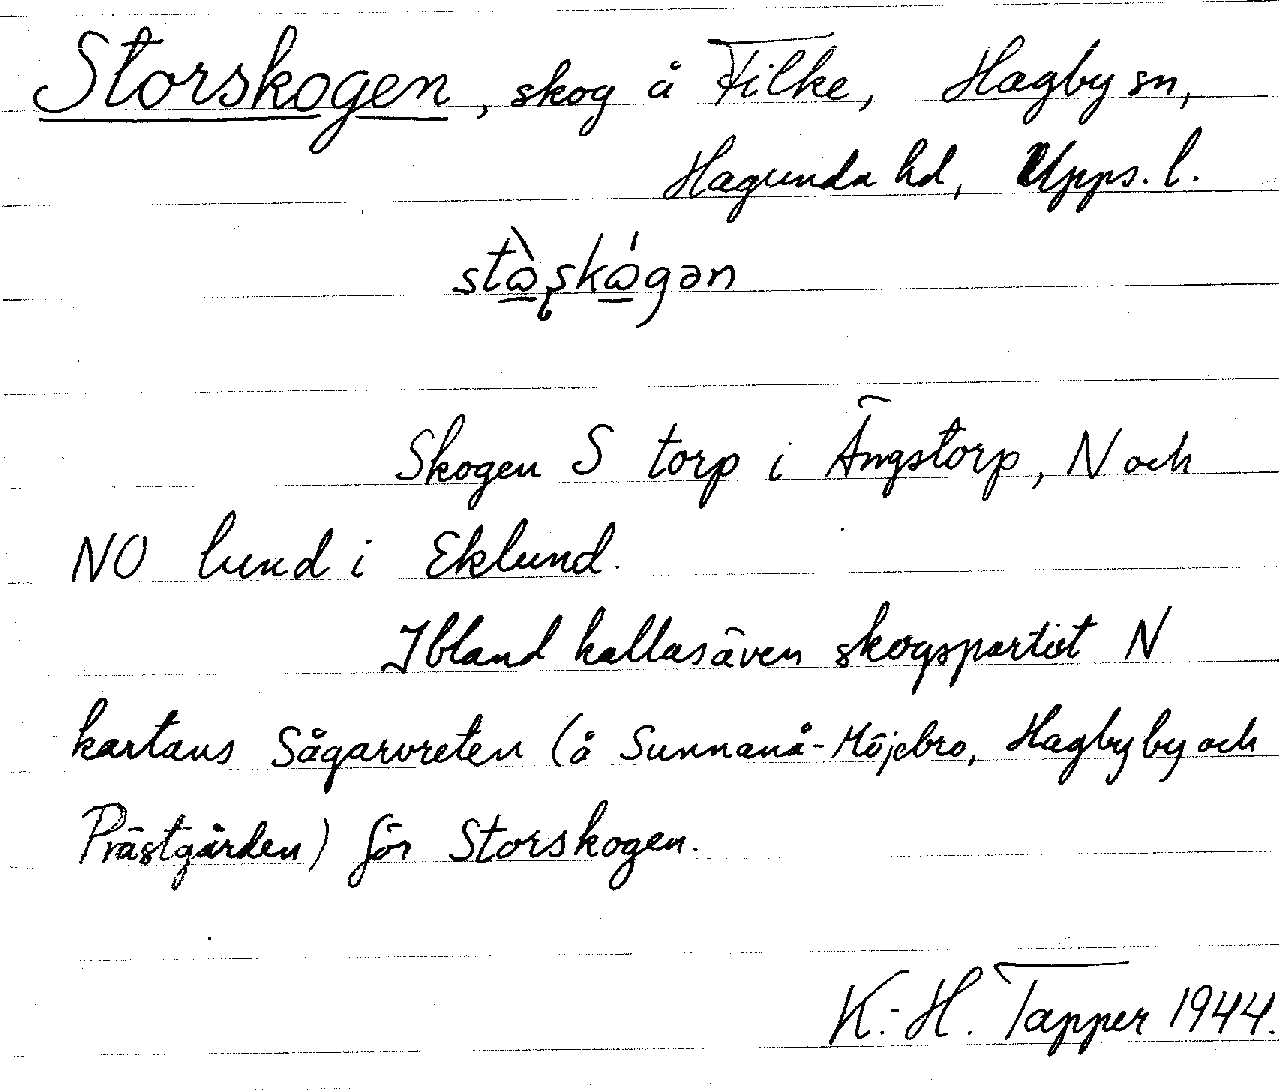 Storskogen, skog å Filke, Hagby sn,
Hagunda hd, Upps. l.
Skogen S torp i Ängstorp, N och
NO lund i Eklund.
Ibland kallas även skogspartiet N
kartans Sågarvreten (å Sunnanå-Möjebro, Hagby by och
Prästgården) för Storskogen.
K.-H. Tapper 1944.